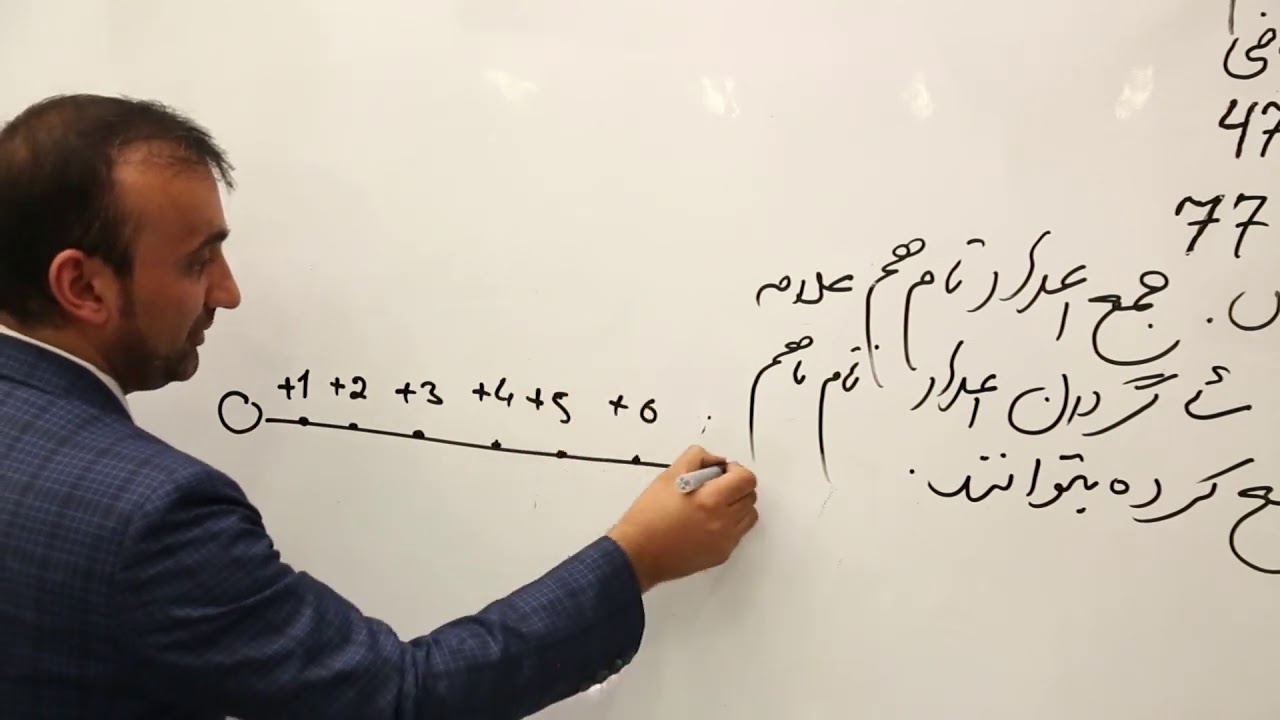 47
77
جمع اعداد تام هم علامه
شاگردان اعداد تام هم
کرده بتوانند.
+1 +2 +3 +4 +5 +6